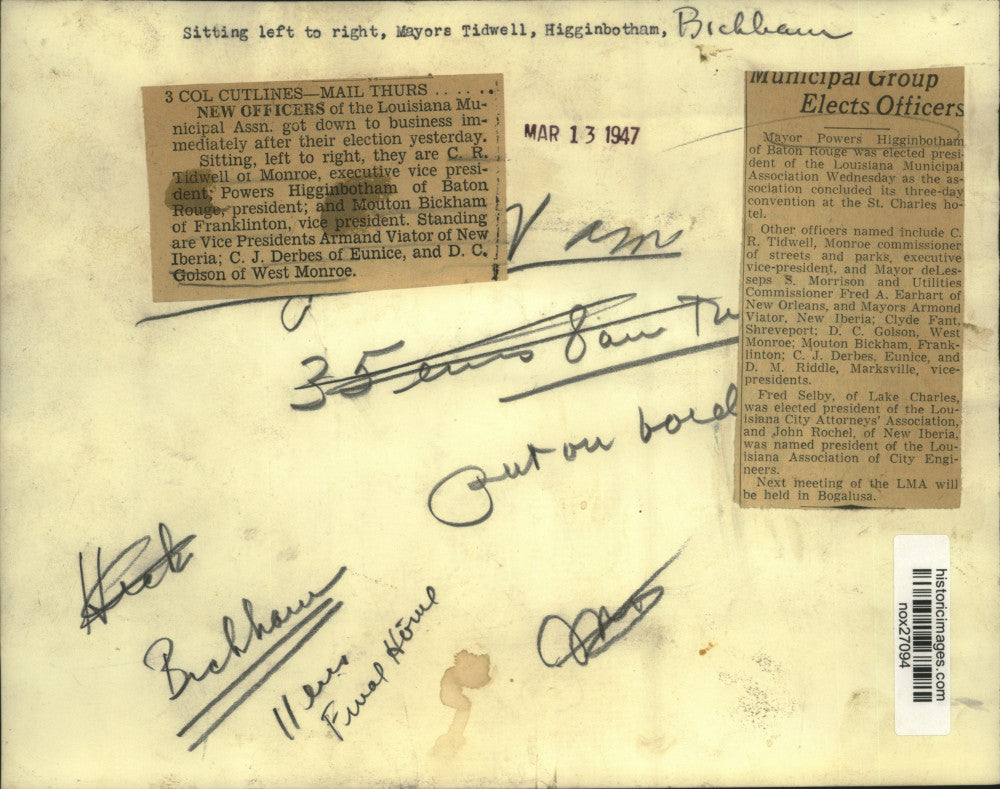 Sitting left to right, Mayors Tidwell, Higginbotham, Bickham
3 COL CUTLINES—MAIL THURS . . . . . .
NEW OFFICERS of the Louisiana Mu-
nicipal Assn. got down to business im-
mediately after their election yesterday.
Sitting, left to right, they are C. R.
Tidwell of Monroe, executive vice presi-
dent; Powers Higginbotham of Baton
Rouge, president; and Mouton Bickham
of Franklinton, vice president. Standing
are Vice Presidents Armand Viator of New
Iberia; C. J. Derbes of Eunice, and D. C.
Golson of West Monroe.
MAR 13 1947
Municipal Group
Elects Officers
Mayor Powers Higginbotham
of Baton Rouge was elected presi-
dent of the Louisiana Municipal
Association Wednesday as the as-
sociation concluded its three-day
convention at the St. Charles ho-
tel.
Other officers named include C.
R. Tidwell, Monroe commissioner
of streets and parks, executive
vice-president, and Mayor deLes-
seps S. Morrison and Utilities
Commissioner Fred A. Earhart of
New Orleans, and Mayors Armond
Viator, New Iberia; Clyde Fant,
Shreveport; D. C. Golson, West
Monroe; Mouton Bickham, Frank-
linton; C. J. Derbes, Eunice, and
D. M. Riddle, Marksville, vice-
presidents.
Fred Selby, of Lake Charles,
was elected president of the Lou-
isiana City Attorneys' Association,
and John Rochel, of New Iberia,
was named president of the Lou-
isiana Association of City Engi-
neers.
Next meeting of the LMA will
be held in Bogalusa.
35 ems 8am
out on
Bickham
11 ems
Final Home
historicimages.com
nox27094